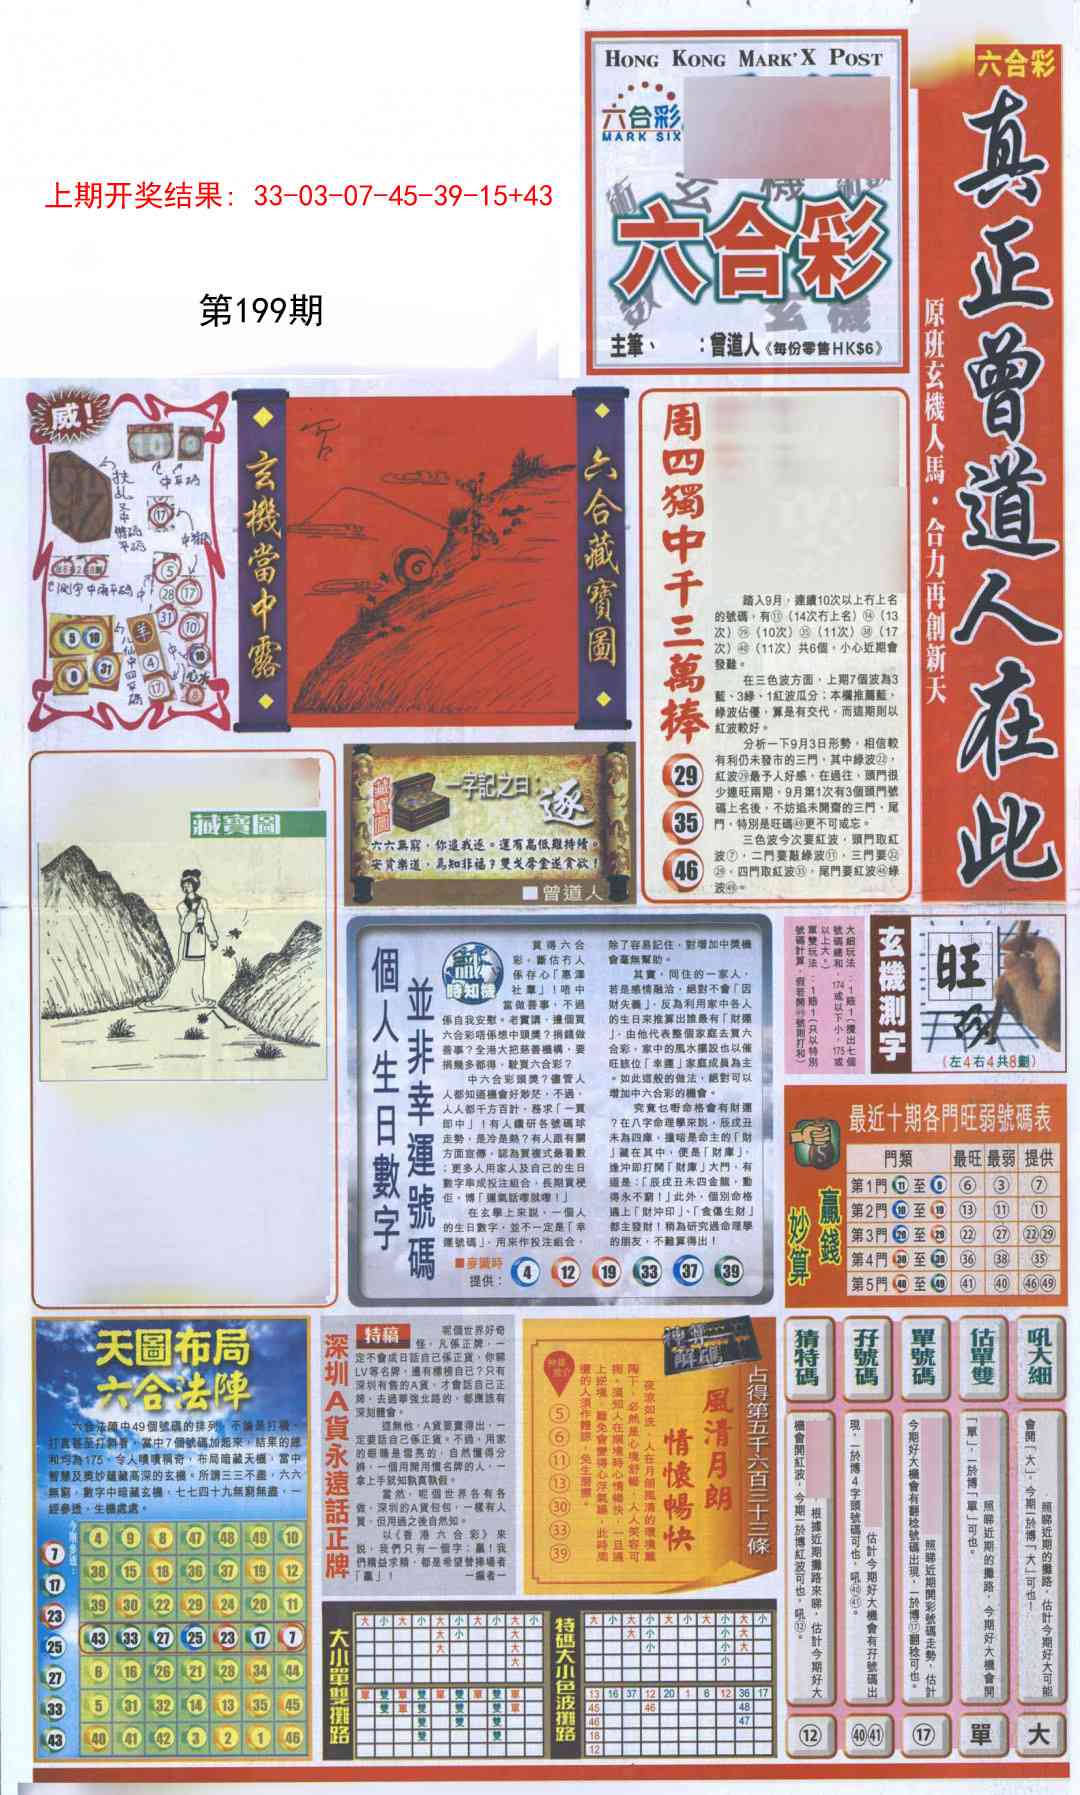 HONG KONG MARK'X POST
六合彩
MARK SIX
六合彩
主筆、 :曾道人《每份零售HK$6》
上期开奖结果: 33-03-07-45-39-15+43
第199期
六合彩
真正曾道人在此
原班玄機人馬·合力再創新天
威!
玄機當中露
六合藏寶圖
周四獨中千三萬捧
29
35
46
踏入9月，連續10次以上冇上名
的號碼，有⑪（14次冇上名）⑭（13
發難。
在三色波方面，上期7個波為3
藍、3綠、1紅波瓜分；本欄推薦藍，
綠波佔優，算是有交代，而這期則以
紅波較好。
分析一下9月3日形勢，相信較
有利仍未發市的三門，其中綠波㉒，
紅波㉙最予人好感，在過往，頭門很
少連旺兩期，9月第1次有3個頭門號
碼上名後，不妨追未開齋的三門，尾
門，特別是旺碼㊾更不可或忘。
三色波今次要紅波，頭門取紅
波⑦，二門要敲綠波⑪，三門要㉒
㉙，四門取紅波㉟，尾門要紅波㊻綠
波㊾。
藏寶圖
藏寶圖
一字記之曰：
逐
六六無窮，你追我逐。還有高低難持續。
安貧樂道，焉知非福？雙戈奪金逐貪欲！
■曾道人
並非幸運號碼
個人生日數字
時知機
買得六合
彩，斷估冇人
係存心「惠澤
社羣」！唔中
當做善事，不過
係自我安慰。老實講，邊個買
六合彩唔係想中頭獎？捐錢做
善事？全港大把慈善機構，要
捐幾多都得，駛買六合彩？
中六合彩頭獎？儘管人
人都知道機會好渺茫，不過，
人人都千方百計，務求「一買
即中」！有人鑽研各號碼球
走勢，是冷是熱？有人跟有關
方面宣傳，認為買複式最着數
；更多人用家人及自己的生日
數字串成投注組合，長期買梗
佢，博「運氣話嚟就嚟！」
在玄學上來說，一個人
的生日數字，並不一定是「幸
運號碼」，用來作投注組合，
除了容易記住，對增加中獎機
會毫無幫助。
其實，同住的一家人，
若是感情融洽，絕對不會「因
財失義」，反為利用家中各人
的生日來推算出誰最有「財運
」，由他代表整個家庭去買六
合彩，家中的風水擺設也以催
旺該位「幸運」家庭成員為主
。如此這般的做法，絕對可以
增加中六合彩的機會。
究竟乜嘢命格會有財運
？在八字命理學來說，辰戌丑
未為四庫，撞啱是命主的「財
」藏在其中，便是「財庫」，
逢沖即打開「財庫」大門，有
道是：「辰戌丑未四金龍，動
得永不窮！」此外，個別命格
遇上「財沖印」、「食傷生財」
都主發財！稍為研究過命理學
的朋友，不難算得出！
■麥識時
提供： 4 12 19 33 37 39
大細玩法：1賠1（攪出七個
號碼總和，174或以下小，175或
以上大。）
單雙玩法：1賠1（只以特別
號碼計算，假若開㊾則打和）
玄機測字
旺
(左4右4共8劃)
最近十期各門旺弱號碼表
贏錢
妙算
門類 最旺 最弱 提供
第1門 1 至 9 ⑥ ③ ⑦
第2門 10 至 19 ⑬ ⑪ ⑪
第3門 20 至 29 ㉒ ㉗ ㉒㉙
第4門 30 至 39 ㊱ ㊳ ㉟
第5門 40 至 49 ㊶ ㊵ ㊻㊾
天圖布局
六合法陣
六合法陣中49個號碼的排列，不論是打橫、
打直甚至打斜看，當中7個號碼加起來，結果的總
和均為175，令人嘖嘖稱奇，布局暗藏天機，當中
智慧及奧妙蘊藏高深的玄機。所謂三三不盡，六六
無窮，數字中暗藏玄機，七七四十九無窮無盡，一
經參透，生機處處。
7
17
23
25
27
33
43
4 9 8 47 48 49 10
38 15 18 36 37 19 12
39 30 22 29 24 20 11
43 33 27 25 23 17 7
6 16 26 21 28 34 44
5 31 32 14 13 35 45
40 41 42 3 2 1 46
深圳A貨永遠話正牌
特稿
呢個世界好奇
怪，凡係正牌，一
定不會成日話自己係正貨，你睇
LV等名牌，邊有標榜自己？只有
深圳有售的A貨，才會話自己正
牌，去過華強北路的，都應該有
深刻體會。
這無他，A貨要賣得出，一
定要話自己係正貨。不過，用家
的眼睛是雪亮的，自然懂得分
辨，一個月開用慣名牌的人，一
拿上手就知孰真孰假。
當然，呢個世界各有各
做，深圳的A貨包包，一樣有人
買，但用過之後自然知。
以《香港六合彩》來
說，我們只有一個字：贏！我
們精益求精，都是希望替捧場者
「贏」！ —編者—
神算
解碼
占得第五千六百三十三條
風清月朗
情懷暢快
夜涼如洗，人在月朗風清的環境薰
陶下，必然是心境舒暢，人人笑容可
掬。須知人在順境時心情暢快，一旦遇
上逆境，難免會變得心浮氣躁，此時周
邊的人須作體諒，免生磨擦。
⑤
⑥
⑪
⑬
㉚
㉝
㊴
大小單雙攤路
大 小 大 小 大 小 大 小 大 小
單 雙 單 雙 單 雙 單 雙 單
特碼大小色波攤路
大 小 大 小 大 小 大 小 大 小
13 16 37 12 20 1 6 12 36 17
45 46 48
46 47
18
12
猜特碼
機會開紅波，今期一於博紅波可也，吼⑫。
根據近期攤路來睇，估計今期好大
⑫
孖號碼
現，一於博4字頭號碼可也，吼㊵㊶。
估計今期好大機會有孖號碼出
㊵㊶
單號碼
今期好大機會有翻稔號碼出現，一於博⑰翻稔可也。
照睇近期開彩號碼走勢，估計
⑰
估單雙
「單」，一於博「單」可也。
照睇近期的攤路，今期好大機會開
單
吼大細
會開「大」，今期一於博「大」可也！
照睇近期的攤路，估計今期好大可能
大